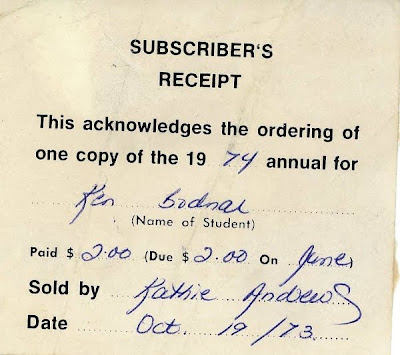 SUBSCRIBER'S
RECEIPT
This acknowledges the ordering of
one copy of the 19 74 annual for
Ken Bodnar
(Name of Student)
Paid $ 2.00 (Due $ 2.00 On June)
Sold by Kathie Andrews
Date Oct. 19/73